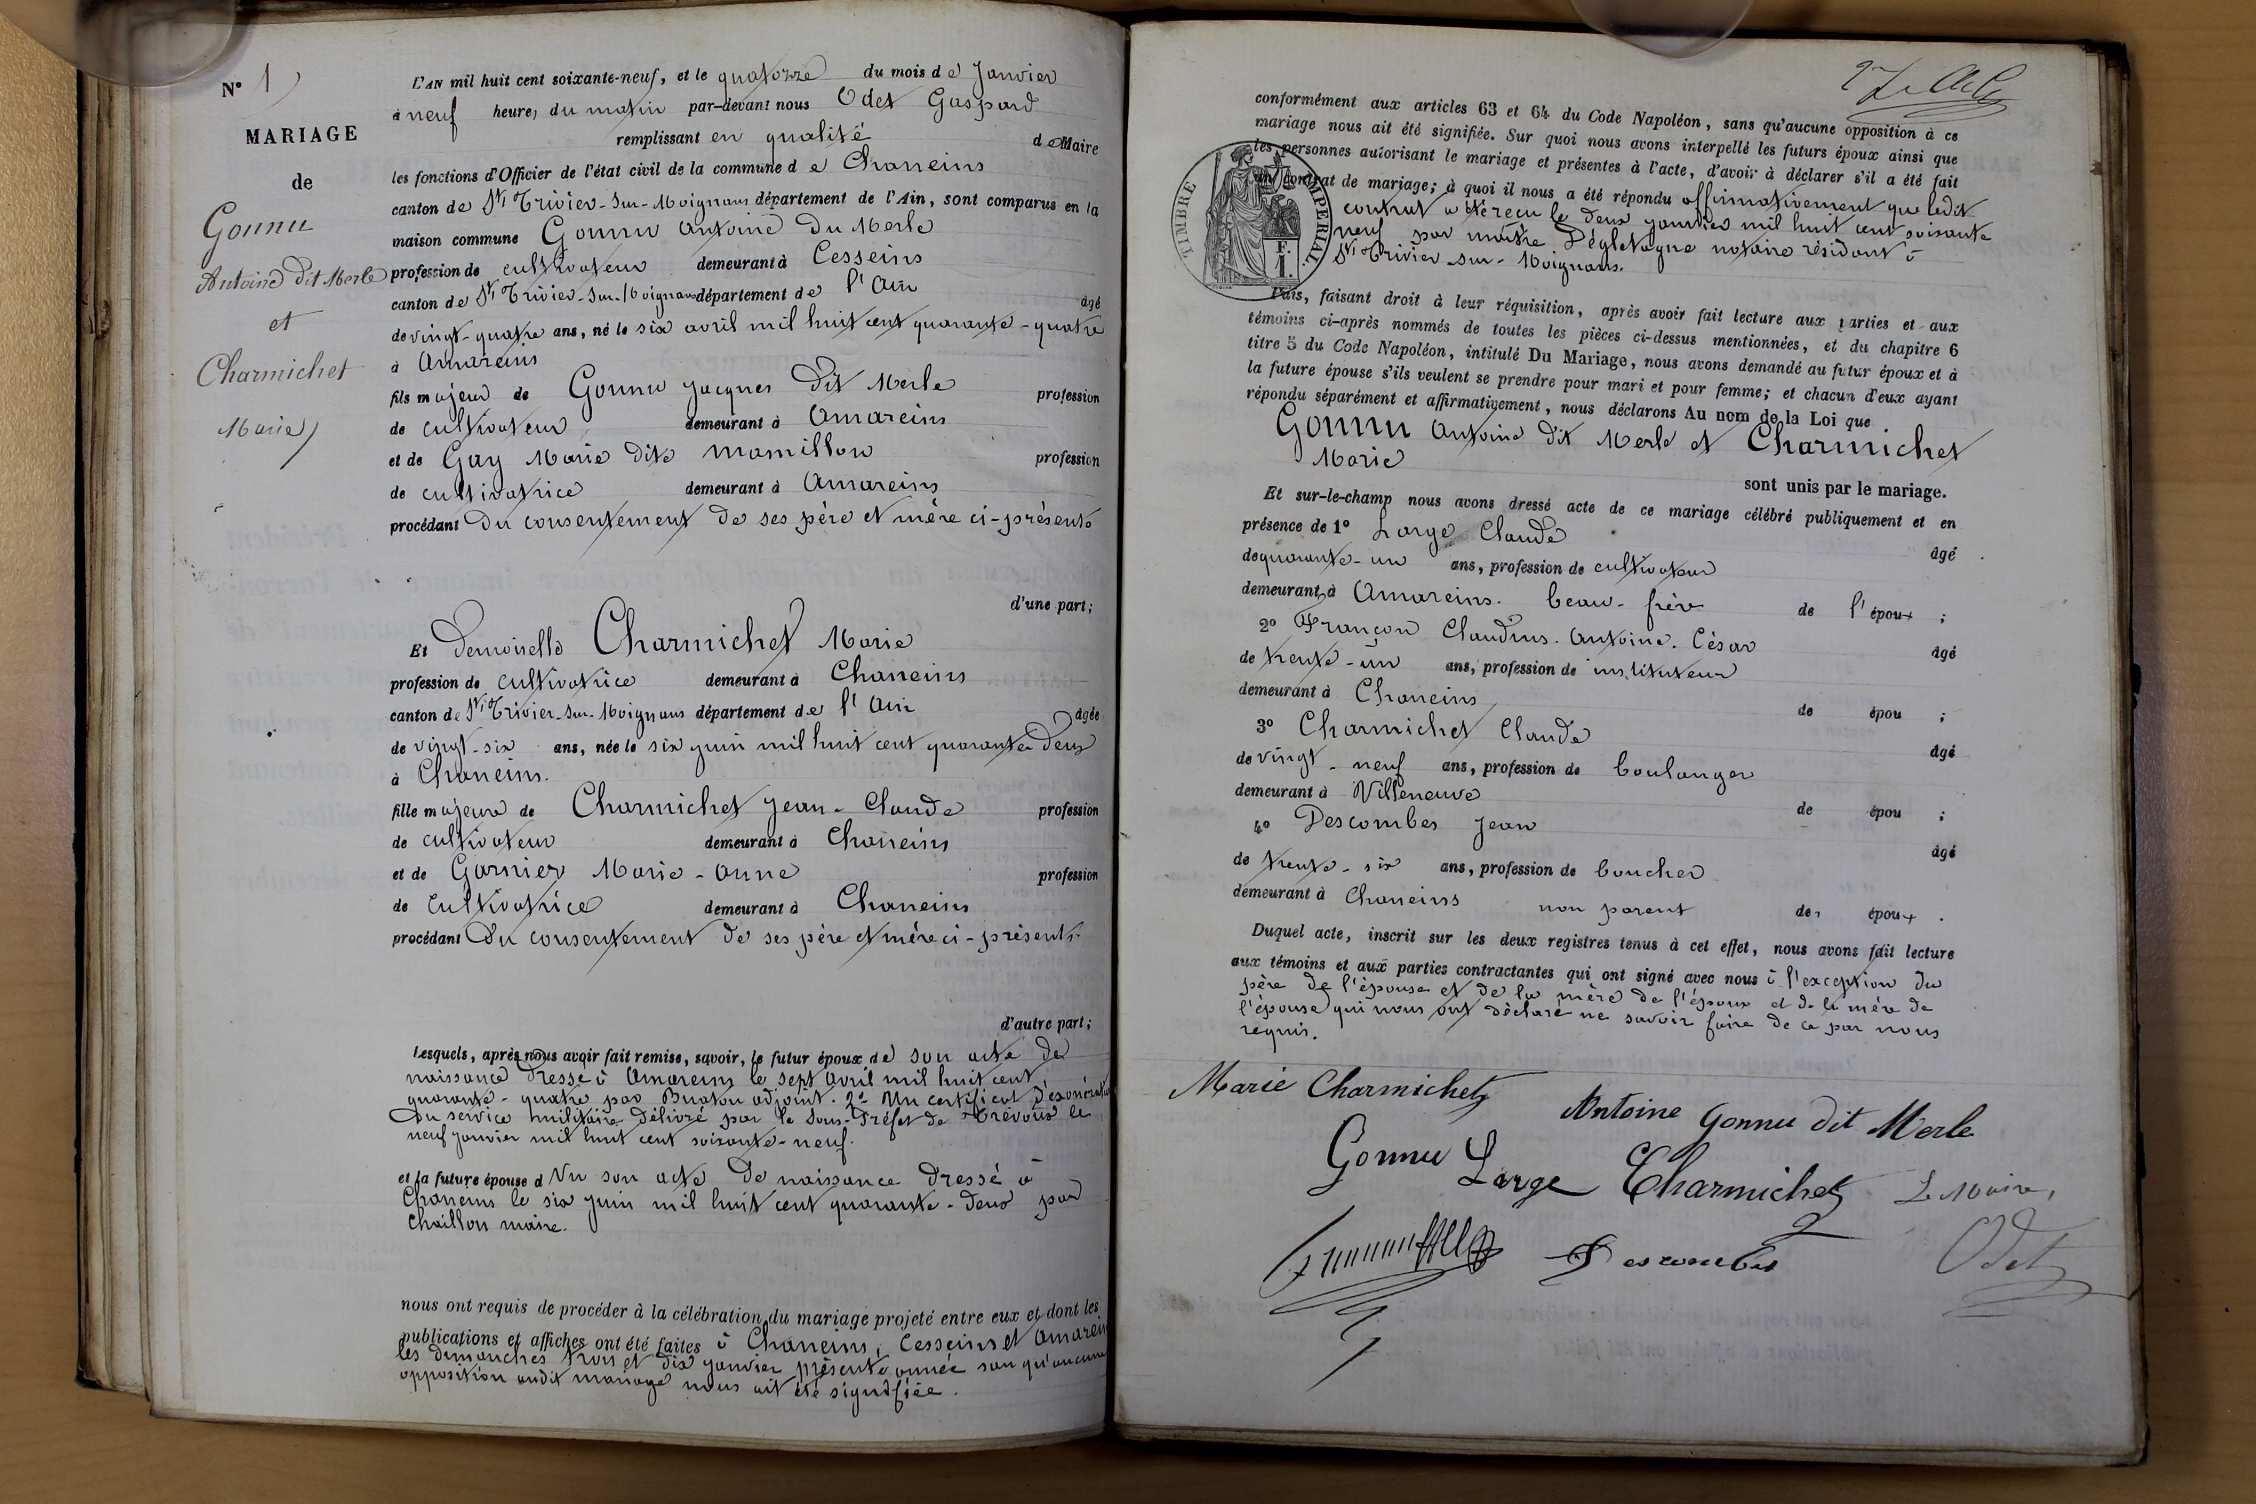 N° 1
MARIAGE
de
Gonnu
Antoine dit Merle
et
Charmichet
Marie
L'AN mil huit cent soixante-neuf, et le quatorze du mois de Janvier
à neuf heures du matin par-devant nous Odet Gaspard
remplissant en qualité de Maire
les fonctions d'Officier de l'état civil de la commune de Chaneins
canton de St Trivier-sur-Moignans département de l'Ain, sont comparus en la
maison commune Gonnu Antoine Du Merle
profession de cultivateur demeurant à Cesseins
canton de St Trivier-sur-Moignans département de l'Ain âgé
de vingt-quatre ans, né le six avril mil huit cent quarante-quatre
à Amareins
fils majeur de Gonnu Jacques Dit Merle profession
de cultivateur demeurant à Amareins
et de Gay Marie dite Mamillon profession
de cultivatrice demeurant à Amareins
procédant du consentement de ses père et mère ci-présents
d'une part;
Et Demoiselle Charmichet Marie
profession de cultivatrice demeurant à Chaneins
canton de St Trivier-sur-Moignans département de l'Ain âgée
de vingt-six ans, née le six juin mil huit cent quarante deux
à Chaneins.
fille majeure de Charmichet Jean-Claude profession
de cultivateur demeurant à Chaneins
et de Garnier Marie-Anne profession
de cultivatrice demeurant à Chaneins
procédant du consentement de ses père et mère ci-présents
d'autre part;
Lesquels, après nous avoir fait remise, savoir, le futur époux de son acte de
naissance dressé à Amareins le sept avril mil huit cent
quarante-quatre par adjoint. 2° Un certificat
du service militaire délivré par le Sous-Préfet de Trévoux le
neuf janvier mil huit cent soixante-neuf.
et la future épouse d'un son acte de naissance dressé à
Chaneins le six juin mil huit cent quarante-deux par
Chaillon maire.
nous ont requis de procéder à la célébration du mariage projeté entre eux et dont les
publications et affiches ont été faites à Chaneins, Cesseins et Amareins
les dimanches trois et dix janvier présente année san qu'aucune
opposition audit mariage nous ait été signifiée.
conformément aux articles 63 et 64 du Code Napoléon, sans qu'aucune opposition à ce
mariage nous ait été signifiée. Sur quoi nous avons interpellé les futurs époux ainsi que
les personnes autorisant le mariage et présentes à l'acte, d'avoir à déclarer s'il a été fait
un contrat de mariage; à quoi il nous a été répondu affirmativement que ledit
contrat a été reçu le deux janvier mil huit cent soixante
neuf par maître notaire résidant à
St Trivier-sur-Moignans.
TIMBRE IMPERIAL.
F.
1.
Puis, faisant droit à leur réquisition, après avoir fait lecture aux parties et aux
témoins ci-après nommés de toutes les pièces ci-dessus mentionnées, et du chapitre 6
titre 5 du Code Napoléon, intitulé Du Mariage, nous avons demandé au futur époux et à
la future épouse s'ils veulent se prendre pour mari et pour femme; et chacun d'eux ayant
répondu séparément et affirmativement, nous déclarons Au nom de la Loi que
Gonnu Antoine dit Merle et Charmichet
Marie
sont unis par le mariage.
Et sur-le-champ nous avons dressé acte de ce mariage célébré publiquement et en
présence de 1° Large Claude âgé
de quarante-un ans, profession de cultivateur
demeurant à Amareins. beau-frère de l'époux ;
2° Françon Claudius. Antoine. César âgé
de trente-un ans, profession de instituteur
demeurant à Chaneins de épou ;
3° Charmichet Claude âgé
de vingt-neuf ans, profession de boulanger
demeurant à Villeneuve de épou ;
4° Descombes Jean âgé
de trente-six ans, profession de boucher
demeurant à Chaneins non parent des époux .
Duquel acte, inscrit sur les deux registres tenus à cet effet, nous avons fait lecture
aux témoins et aux parties contractantes qui ont signé avec nous à l'exception du
père de l'épouse et de la mère de l'époux et de la mère de
l'épouse qui nous ont déclaré ne savoir faire de ce par nous
requis.
Marie Charmichet
Antoine Gonnu dit Merle
Gonnu Large Charmichet Le Maire,
Descombes Odet